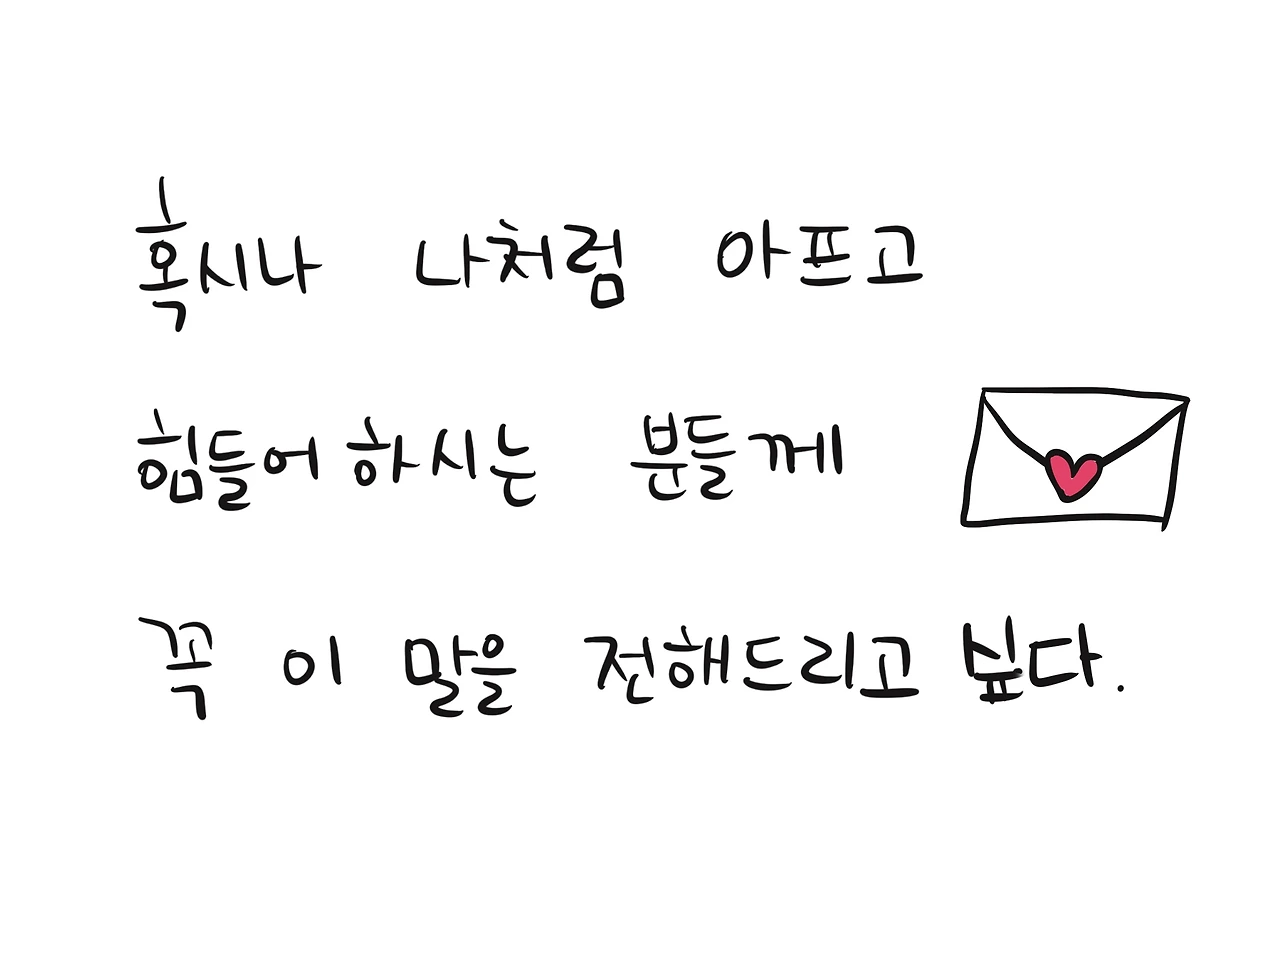 혹시나 나처럼 아프고
힘들어 하시는 분들께
꼭 이 말을 전해드리고 싶다.